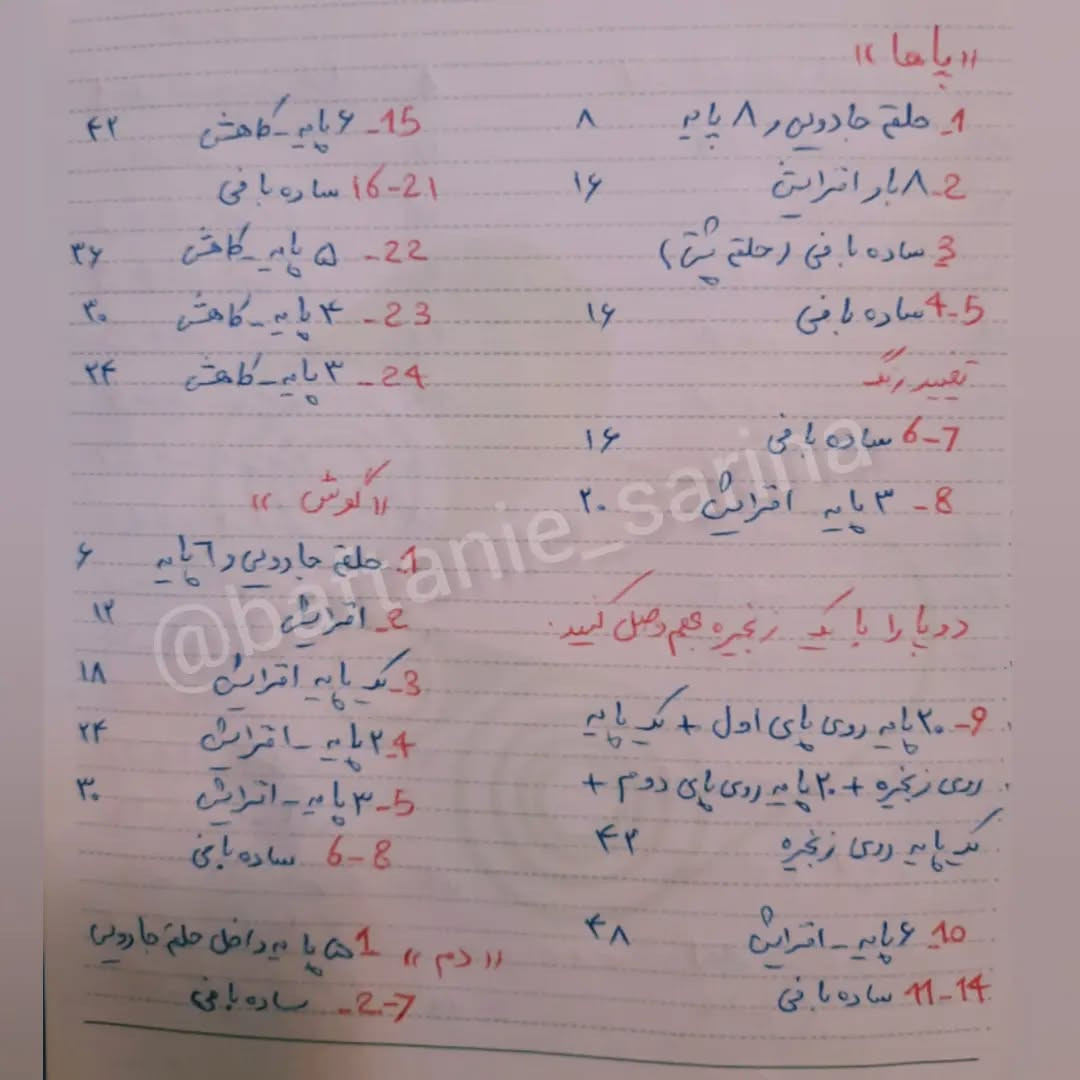 «پاها»
1_ حلقه جادویی و ۸ پایه ۸
2_ ۸ بار افزایش ۱۶
3 ساده بافی (حلقه پشتی)
4-5 ساده بافی ۱۶
تغییر رنگ
6-7 ساده بافی ۱۶
8- ۳ پایه افزایش ۲۰
دو پا را با یک زنجیره بهم وصل کنید.
9- ۲۰ پایه روی پای اول + یک پایه
روی زنجیره + ۲۰ پایه روی پای دوم +
یک پایه روی زنجیره ۴۲
10_ ۶ پایه _ افزایش ۴۸
11-14 ساده بافی
15_ ۶ پایه _ کاهش ۴۲
16-21 ساده بافی
22_ ۵ پایه _ کاهش ۳۶
23_ ۴ پایه _ کاهش ۳۰
24_ ۳ پایه _ کاهش ۲۴
«گوش»
1_ حلقه جادویی و ٦ پایه ۶
2_ افزایش ۱۲
3_ یک پایه افزایش ۱۸
4_ ۲ پایه _ افزایش ۲۴
5_ ۳ پایه _ افزایش ۳۰
6-8 ساده بافی
«دم» 1 ۵ پایه داخل حلقه جادویی
2-7_ ساده بافی
@baftanie_sarina